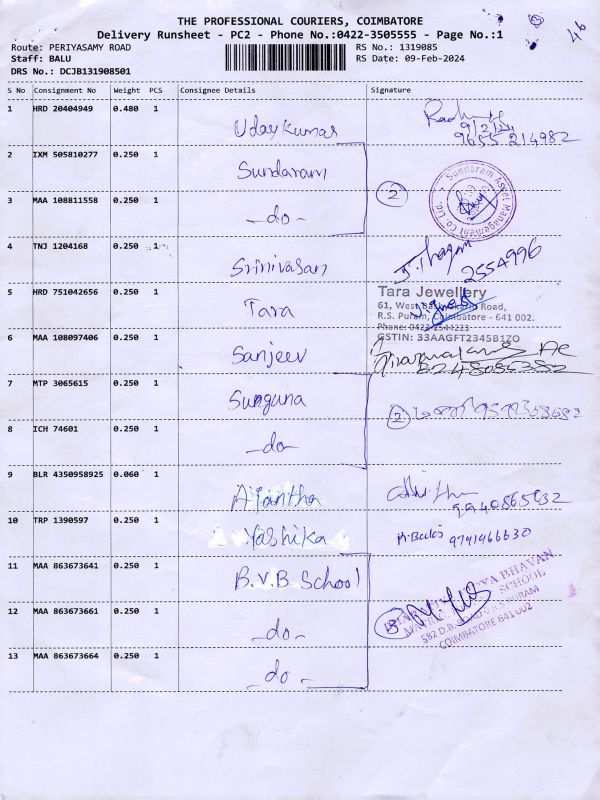 THE PROFESSIONAL COURIERS, COIMBATORE
Delivery Runsheet - PC2 - Phone No.:0422-3505555 - Page No.:1
46
Route: PERIYASAMY ROAD
RS No.: 1319085
Staff: BALU
RS Date: 09-Feb-2024
DRS No.: DCJB131908501
S No Consignment No Weight PCS Consignee Details Signature
1 HRD 20404949 0.480 1 Udaykumar
9/2/24
9655 214982
2 IXM 505810277 0.250 1 Sundaram
Sundaram Asset Management Co. Ltd.
2
3 MAA 108811558 0.250 1 -do-
4 TNJ 1204168 0.250 1 Srinivasan
2554996
5 HRD 751042656 0.250 1 Tara
Tara Jewellery
61, West Road,
R.S. Puram, Coimbatore - 641 002.
Phone: 0422-2544223
GSTIN: 33AAGFT2345B1ZO
6 MAA 108097406 0.250 1 Sanjeev
7 MTP 3065615 0.250 1 Sunguna
2
8 ICH 74601 0.250 1 -do-
9 BLR 4350958925 0.060 1 Ajantha
10 TRP 1390597 0.250 1 Yashika
9791966630
11 MAA 863673641 0.250 1 B.V.B School
BHAVAN
SCHOOL
COIMBATORE 641 002
3
12 MAA 863673661 0.250 1 -do-
13 MAA 863673664 0.250 1 -do-